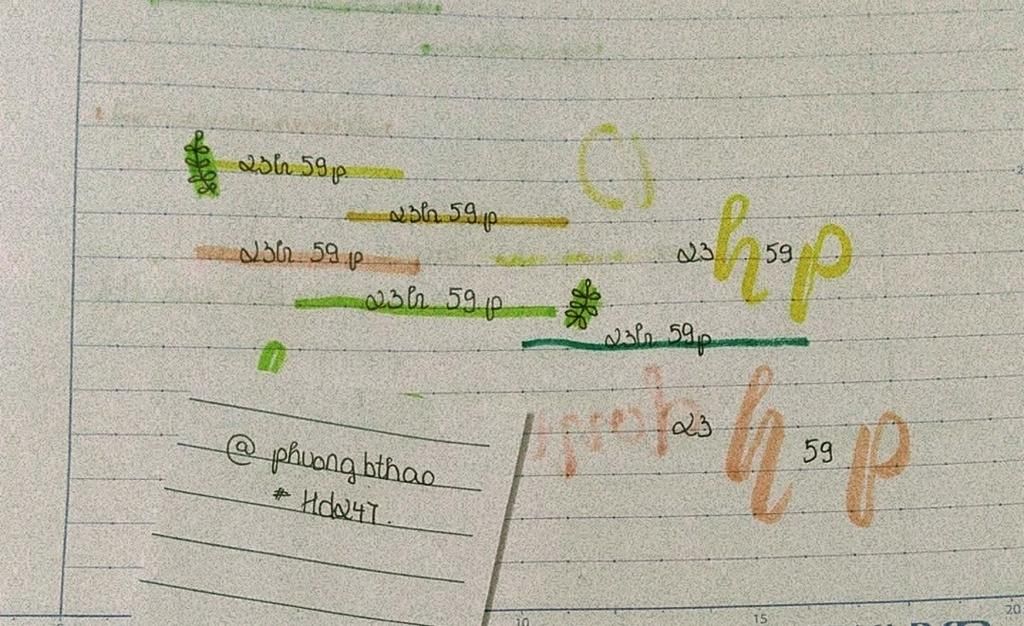 23h 59p
23h 59.p
23h 59 p
23 h 59 p
23h 59.p
23h 59p
23 h 59 p
@ phuongbthao
# Hd247.
10 15 20